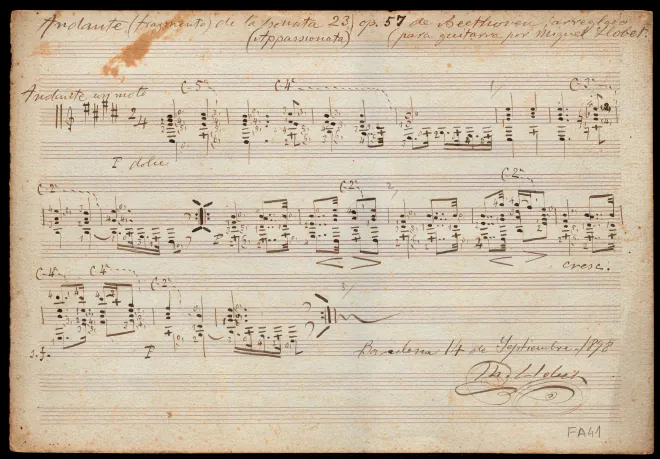 Andante (fragmento) de la sonata 23, op. 57 de Beethoven, arreglado
(Appassionata) (para guitarra por Miguel Llobet.
Andante con moto
C-5ª C-4ª C-2ª
2/4
P dolce
C-2ª C-2ª C-2ª
cresc.
C-4ª C-4ª C-2ª
s.f. P
Barcelona 14 de Septiembre /898
M. Llobet
FA41